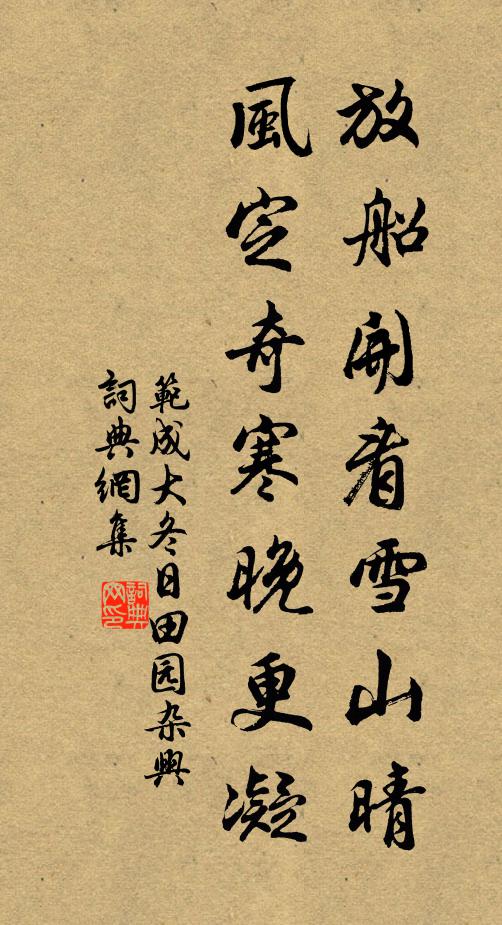 放船開看雪山晴
風定奇寒晚更凝
範成大冬日田园杂興
詞典網集
詞典网印